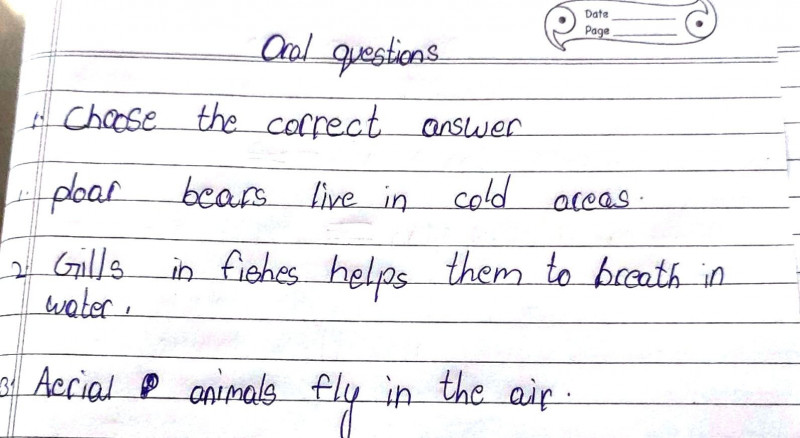 Date
Page
Oral questions
1. Choose the correct answer
1. ploar bears live in cold areas.
2. Gills in fishes helps them to breath in
water.
3. Aerial animals fly in the air.